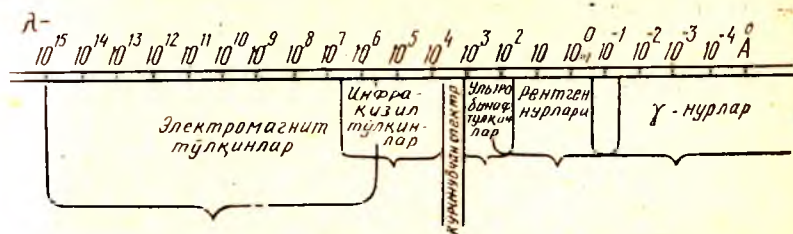 λ-
10¹⁵ 10¹⁴ 10¹³ 10¹² 10¹¹ 10¹⁰ 10⁹ 10⁸ 10⁷ 10⁶ 10⁵ 10⁴ 10³ 10² 10 10⁰ 10⁻¹ 10⁻² 10⁻³ 10⁻⁴ Å
Электромагнит
тўлқинлар
Инфра-
қизил
тўлқин-
лар
кўринувчан спектр
Ультра
бинафша
тўлқин
лар
Рентген
нурлари
γ - нурлар